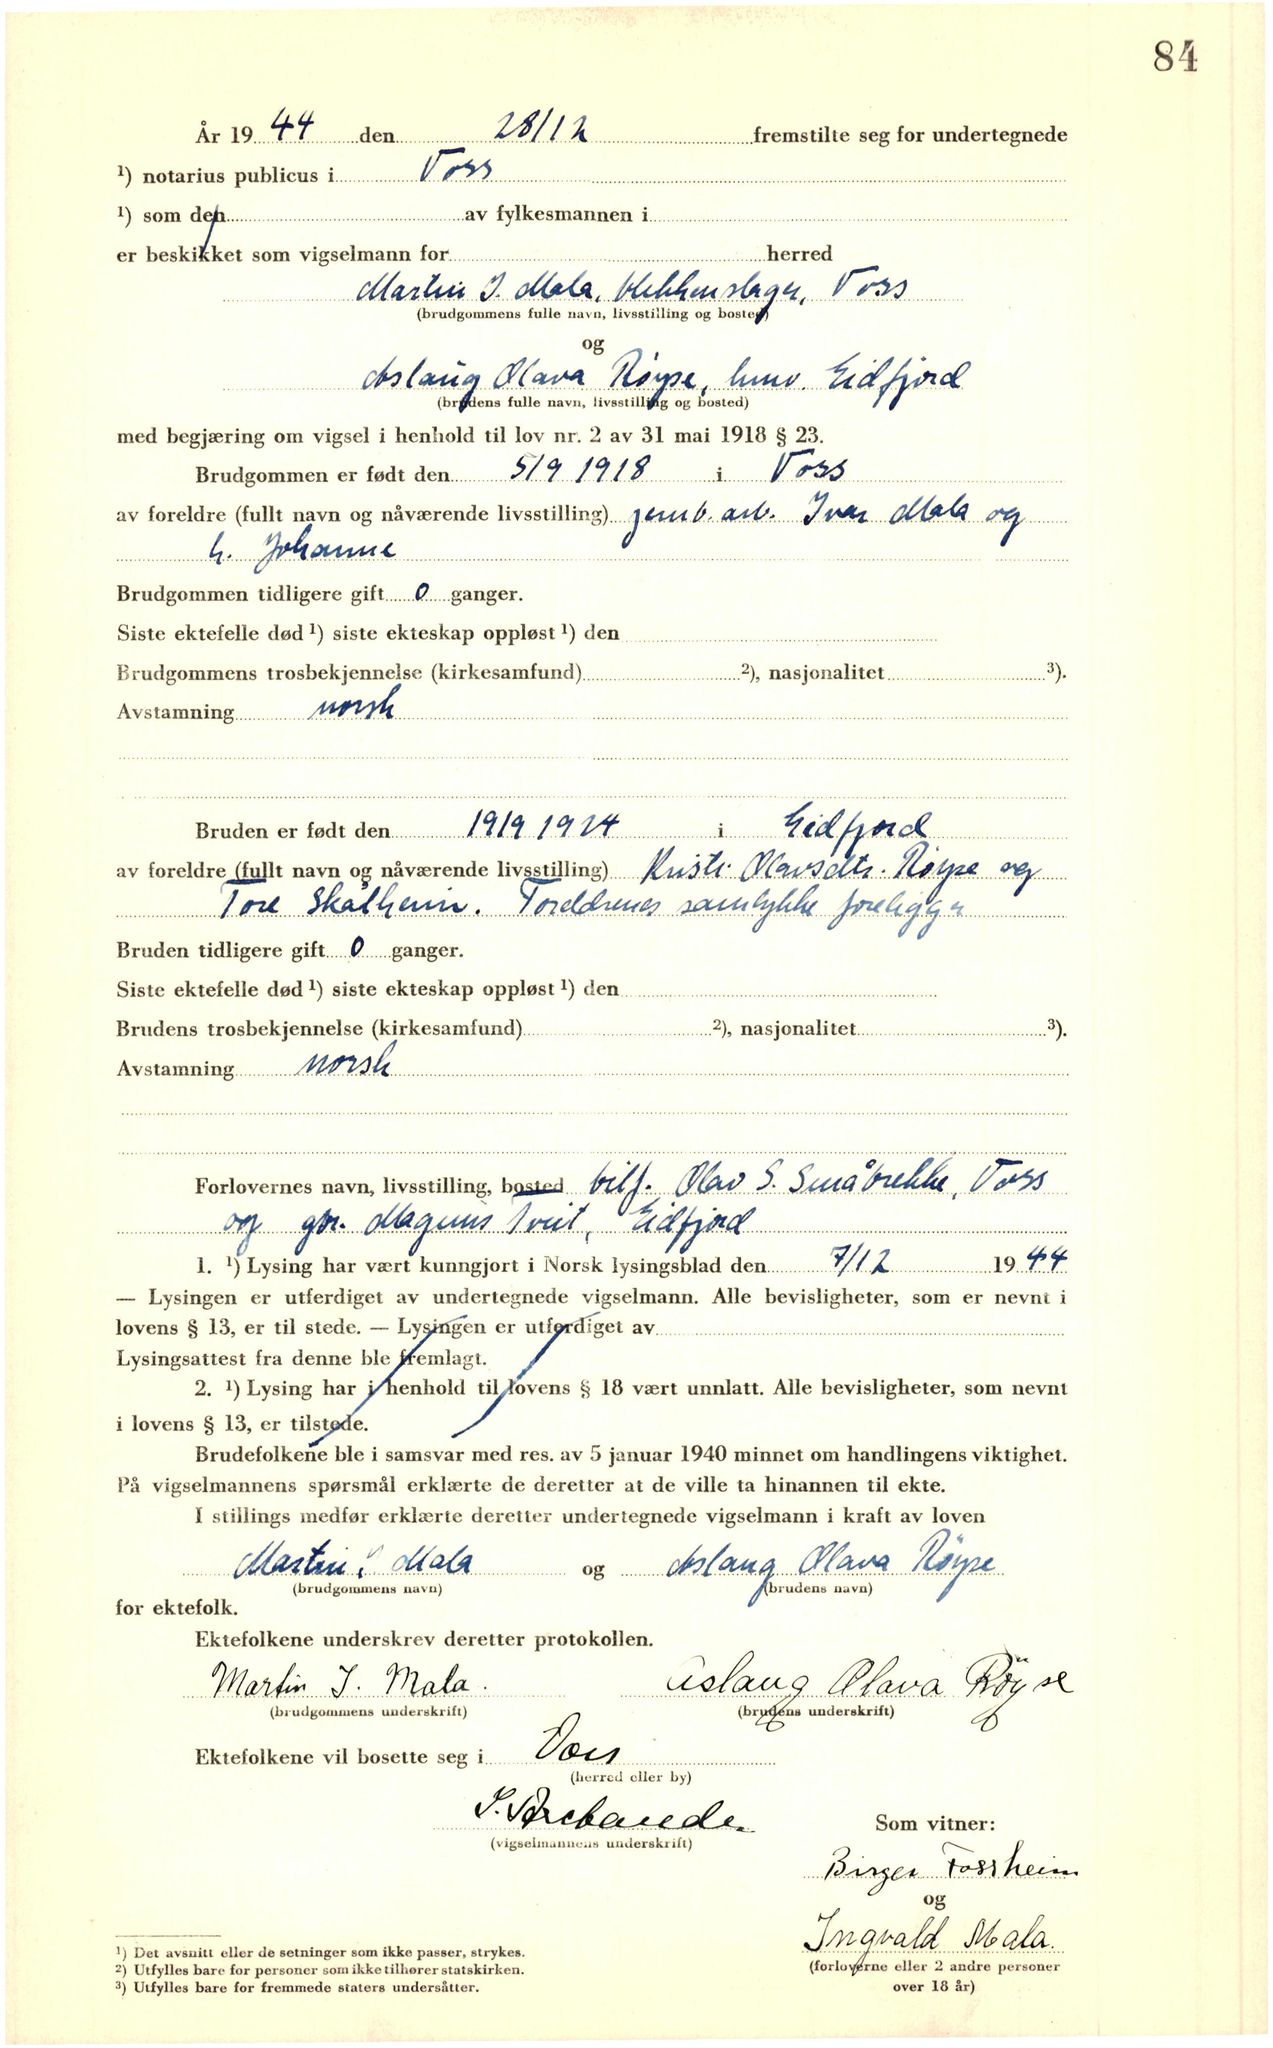 84
År 19 44 den 28/12 fremstilte seg for undertegnede
¹) notarius publicus i Voss
¹) som den av fylkesmannen i
er beskikket som vigselmann for herred
Martin I. Mala, blikkenslager, Voss
(brudgommens fulle navn, livsstilling og bosted)
og
Aslaug Olava Røyse, hmv. Eidfjord
(brudens fulle navn, livsstilling og bosted)
med begjæring om vigsel i henhold til lov nr. 2 av 31 mai 1918 § 23.
Brudgommen er født den 5/9 1918 i Voss
av foreldre (fullt navn og nåværende livsstilling) jernb. arb. Ivar Mala og
h. Johanne
Brudgommen tidligere gift 0 ganger.
Siste ektefelle død ¹) siste ekteskap oppløst ¹) den
Brudgommens trosbekjennelse (kirkesamfund) ²), nasjonalitet ³).
Avstamning norsk
Bruden er født den 19/9 1924 i Eidfjord
av foreldre (fullt navn og nåværende livsstilling) Kristi Olavsdtr. Røyse og
Tore Skålheim. Foreldrenes samtykke foreligger
Bruden tidligere gift 0 ganger.
Siste ektefelle død ¹) siste ekteskap oppløst ¹) den
Brudens trosbekjennelse (kirkesamfund) ²), nasjonalitet ³).
Avstamning norsk
Forlovernes navn, livsstilling, bosted bilf. Olav S. Småbrekke, Voss
og gbr. Magnus Tveit, Eidfjord
1. ¹) Lysing har vært kunngjort i Norsk lysingsblad den 7/12 19 44
— Lysingen er utferdiget av undertegnede vigselmann. Alle bevisligheter, som er nevnt i
lovens § 13, er til stede. — Lysingen er utferdiget av
Lysingsattest fra denne ble fremlagt.
2. ¹) Lysing har i henhold til lovens § 18 vært unnlatt. Alle bevisligheter, som nevnt
i lovens § 13, er tilstede.
Brudefolkene ble i samsvar med res. av 5 januar 1940 minnet om handlingens viktighet.
På vigselmannens spørsmål erklærte de deretter at de ville ta hinannen til ekte.
I stillings medfør erklærte deretter undertegnede vigselmann i kraft av loven
Martin I. Mala og Aslaug Olava Røyse
(brudgommens navn) (brudens navn)
for ektefolk.
Ektefolkene underskrev deretter protokollen.
Martin I. Mala. Aslaug Olava Røyse
(brudgommens underskrift) (brudens underskrift)
Ektefolkene vil bosette seg i Voss
(herred eller by)
(vigselmannens underskrift)
Som vitner:
Birger Fossheim
og
Ingvald Mala.
(forloverne eller 2 andre personer
over 18 år)
¹) Det avsnitt eller de setninger som ikke passer, strykes.
²) Utfylles bare for personer som ikke tilhører statskirken.
³) Utfylles bare for fremmede staters undersåtter.